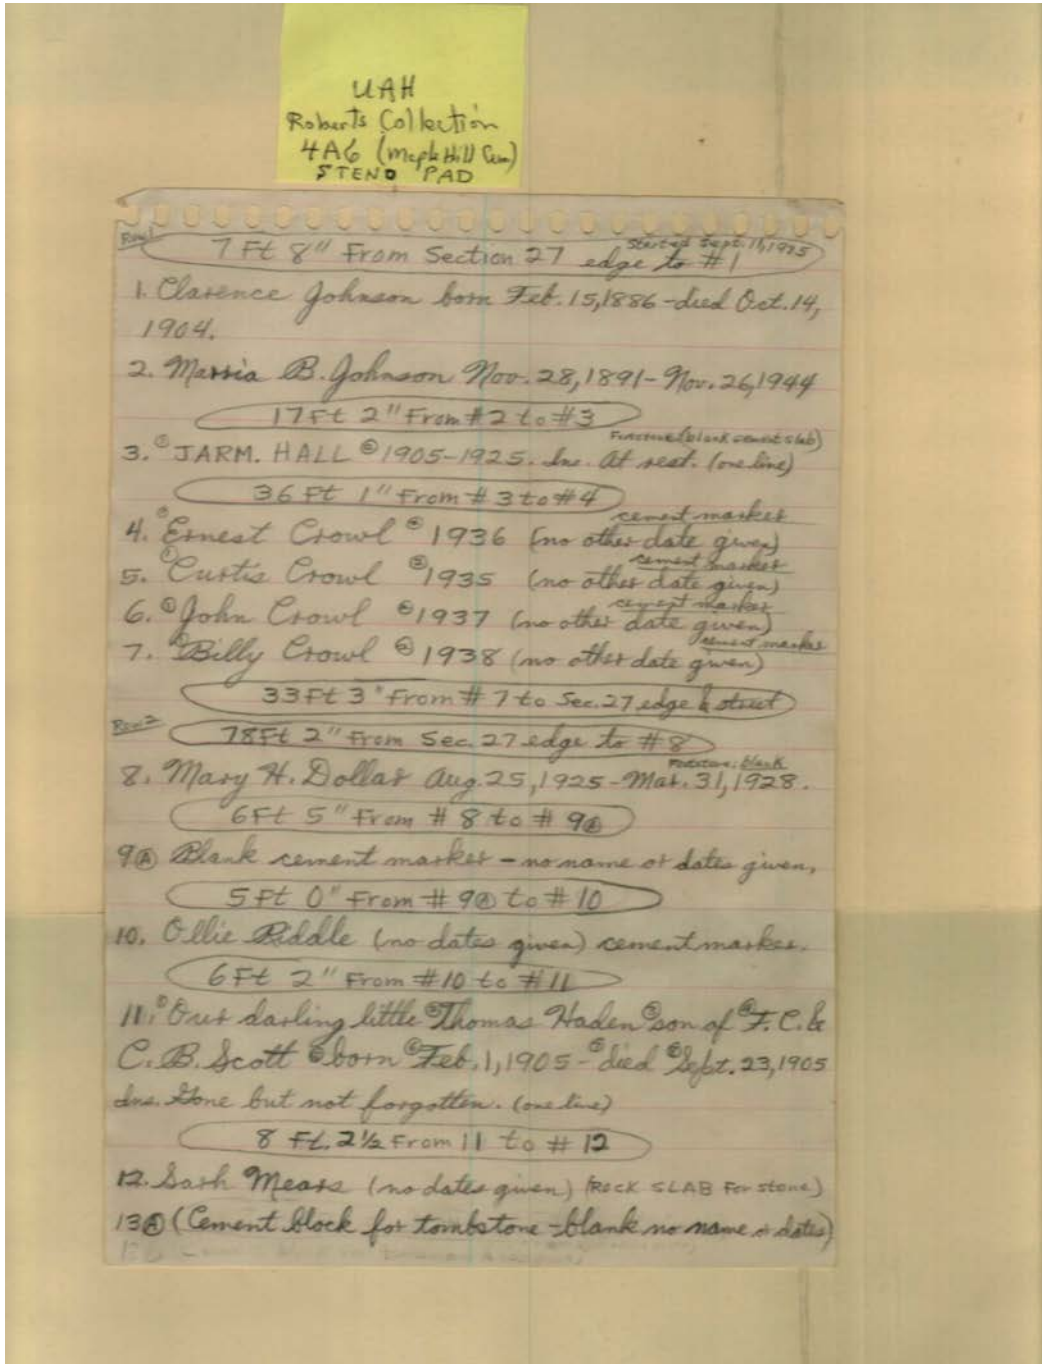 UAH
Roberts Collection
4A6 (Maple Hill Cem)
STENO PAD
Row 1
Started Sept. 11, 1975
7 Ft 8" From Section 27 edge to #1
1. Clarence Johnson born Feb. 15, 1886 - died Oct. 14,
1904.
2. Marria B. Johnson Nov. 28, 1891 - Nov. 26, 1944
17 Ft 2" From #2 to #3
Footstone (blank cement slab)
3. ① JARM. HALL ② 1905-1925. Ins. At rest. (one line)
36 Ft 1" From #3 to #4
cement marker
4. ① Ernest Crowl ② 1936 (no other date given)
cement marker
5. ① Curtis Crowl ② 1935 (no other date given)
cement marker
6. ① John Crowl ② 1937 (no other date given)
cement marker
7. ① Billy Crowl ② 1938 (no other date given)
33 Ft 3" From #7 to Sec. 27 edge & street
Row 2
78 Ft 2" From Sec. 27 edge to #8
Footstone: blank
8. Mary H. Dollar Aug. 25, 1925 - Mar. 31, 1928.
6 Ft 5" From #8 to #9Ⓐ
9Ⓐ Blank cement marker - no name or dates given.
5 Ft 0" From #9Ⓐ to #10
10. Ollie Riddle (no dates given) cement marker.
6 Ft 2" From #10 to #11
11. ① Our darling little ② Thomas Haden ③ son of ④ F. C. &
C. B. Scott ⑤ born ⑥ Feb. 1, 1905 - ⑦ died ⑧ Sept. 23, 1905
Ins. Gone but not forgotten. (one line)
8 Ft. 2½ From 11 to #12
12. Sarh Mears (no dates given) (ROCK SLAB For stone)
13Ⓐ (Cement block for tombstone - blank no name or dates)